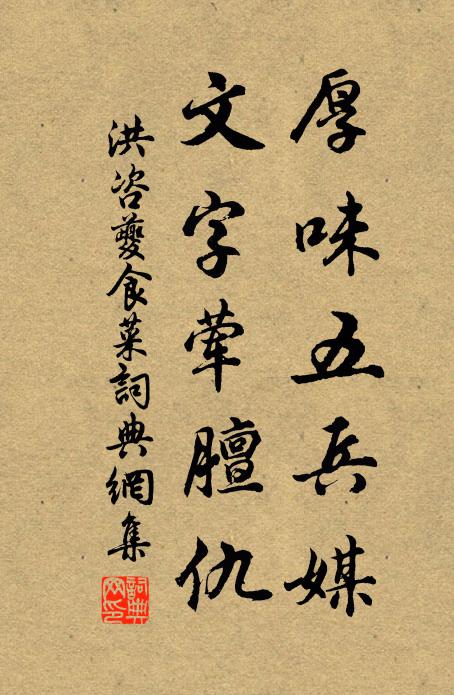 厚味五兵媒
文字荤膻仇
洪咨夔食菜詞典網集
詞典网印